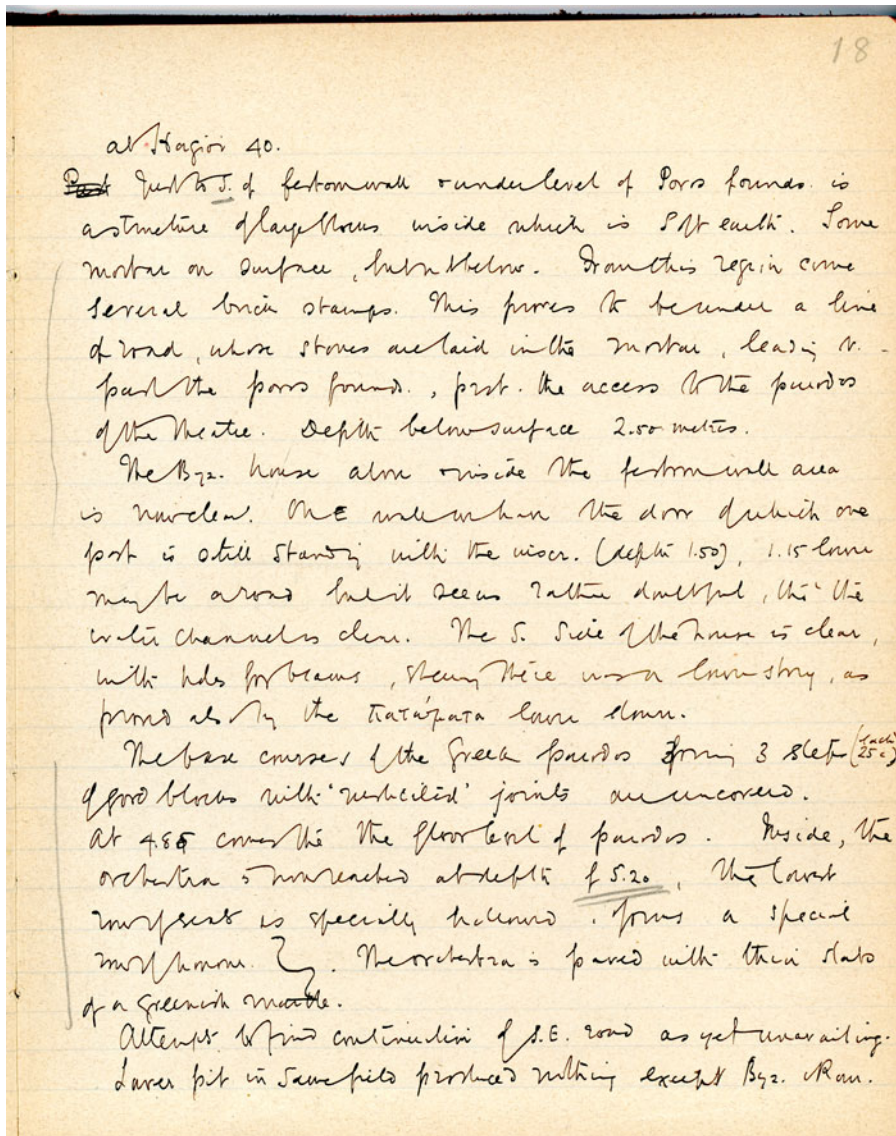 18
at Hagioi 40.
Just to S. of festoon wall & under level of Poros founds. is
a structure of large blocks inside which is soft earth. Some
mortar on surface, but not below. From this region come
several brick stamps. This proves to be under a line
of road, whose stones are laid in the mortar, leading
past the poros founds., past the access to the parodos
of the theatre. Depth below surface 2.50 metres.
The Byz. house alone inside the festoon wall area
is now clear. On E the door of which one
post is still standing with the (depth 1.50), 1.15 lower
may be a road but it seems rather doubtful, tho' the
water channel is clear. The S. side of the house is clear,
with holes for beams, shewing there was a lower story, as
proved also by the πατώματα lower down.
The base courses of the Greek parodos forming 3 steps (each 25 c)
of good blocks with joints are uncovered.
At 4.85 comes the the floor level of parodos. Inside, the
orchestra is now reached at depth of 5.20, the lowest
row of seats is specially hollowed & forms a special
row of honour. The orchestra is paved with thin slabs
of a greenish marble.
Attempt to find continuation of S.E. road as yet unavailing.
Lower pit in same field produced nothing except Byz. & Rom.